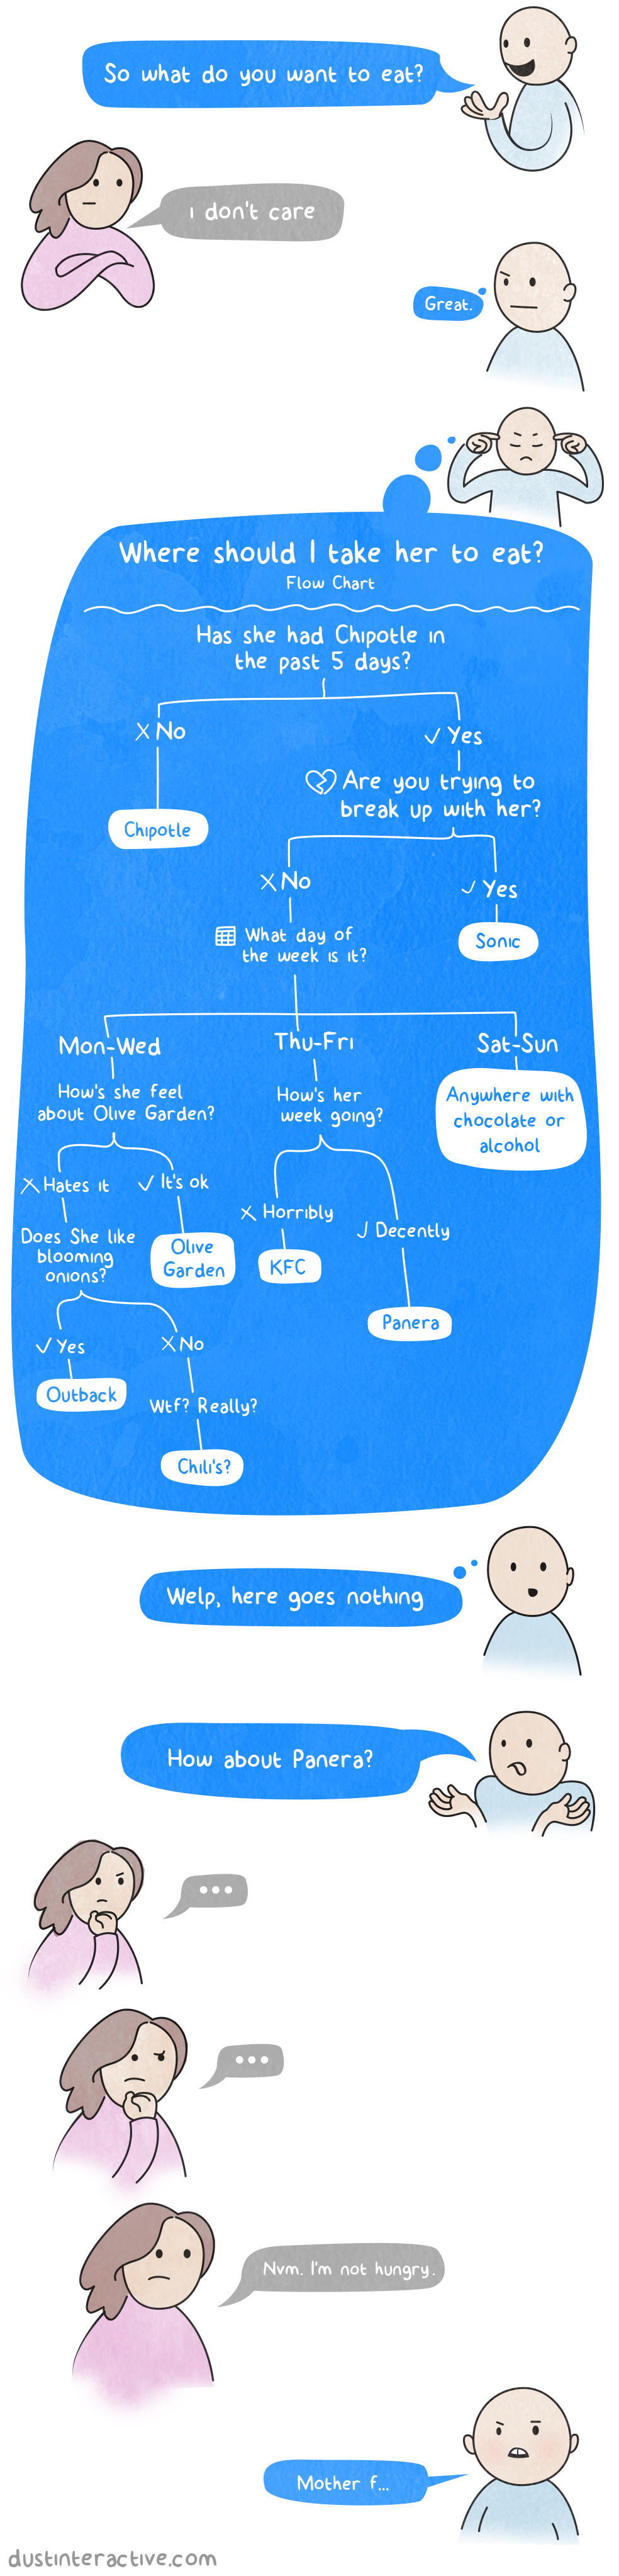 So what do you want to eat?
i don't care
Great.
Where should I take her to eat?
Flow Chart
Has she had Chipotle in
the past 5 days?
No
Yes
Chipotle
Are you trying to
break up with her?
No
Yes
Sonic
What day of
the week is it?
Mon-Wed
Thu-Fri
Sat-Sun
How's she feel
about Olive Garden?
How's her
week going?
Anywhere with
chocolate or
alcohol
Hates it
It's ok
Horribly
Decently
Does She like
blooming
onions?
Olive
Garden
KFC
Panera
Yes
No
Outback
Wtf? Really?
Chili's?
Welp, here goes nothing
How about Panera?
...
...
Nvm. I'm not hungry.
Mother f...
dustinteractive.com